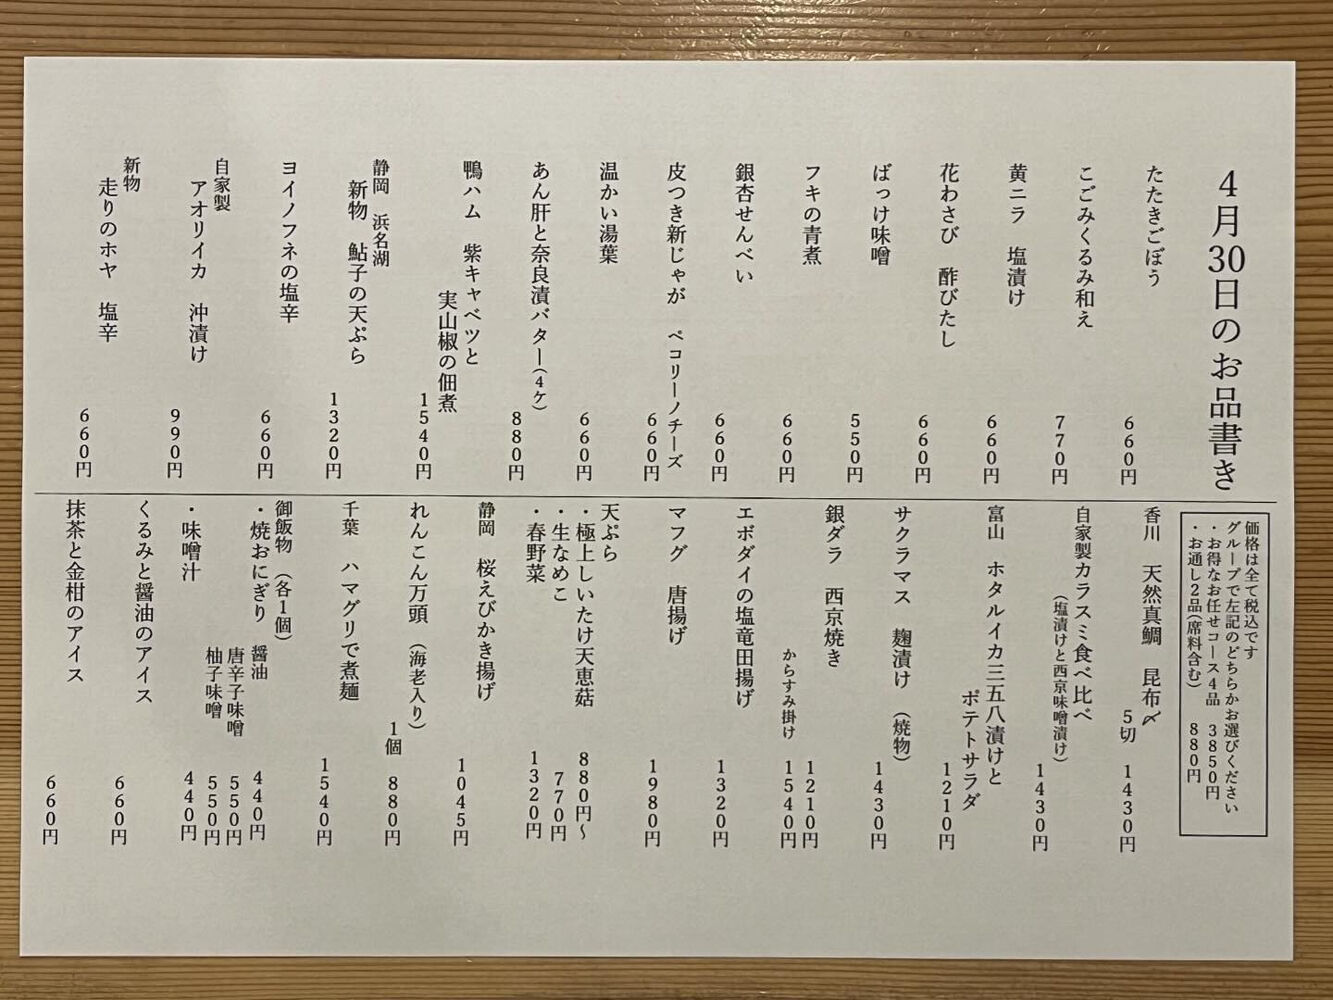 4月30日のお品書き
たたきごぼう
660円
こごみくるみ和え
770円
黄ニラ 塩漬け
660円
花わさび 酢びたし
660円
ばっけ味噌
550円
フキの青煮
660円
銀杏せんべい
660円
皮つき新じゃが ペコリーノチーズ
660円
温かい湯葉
660円
あん肝と奈良漬バター(4ケ)
880円
鴨ハム 紫キャベツと
実山椒の佃煮
1540円
静岡 浜名湖
新物 鮎子の天ぷら
1320円
ヨイノフネの塩辛
660円
自家製
アオリイカ 沖漬け
990円
新物
走りのホヤ 塩辛
660円
価格は全て税込です
グループで左記のどちらかお選びください
・お得なお任せコース4品 3850円
・お通し2品(席料含む) 880円
香川 天然真鯛 昆布〆
5切 1430円
自家製カラスミ食べ比べ
(塩漬けと西京味噌漬け)
1430円
富山 ホタルイカ三五八漬けと
ポテトサラダ
1210円
サクラマス 麹漬け (焼物)
1430円
銀ダラ 西京焼き
1210円
からすみ掛け 1540円
エボダイの塩竜田揚げ
1320円
マフグ 唐揚げ
1980円
天ぷら
・極上しいたけ天恵菇 880円～
・生なめこ 770円
・春野菜 1320円
静岡 桜えびかき揚げ
1045円
れんこん万頭 (海老入り)
1個 880円
千葉 ハマグリで煮麺
1540円
御飯物 (各1個)
・焼おにぎり 醤油 440円
唐辛子味噌 550円
柚子味噌 550円
・味噌汁 440円
くるみと醤油のアイス
660円
抹茶と金柑のアイス
660円